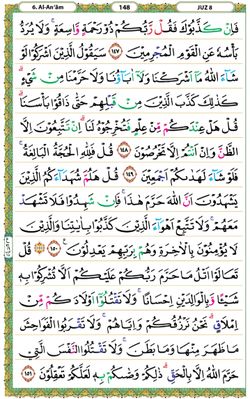 6. Al-An'âm 148 JUZ 8
فَاِنْ كَذَّبُوْكَ فَقُلْ رَّبُّكُمْ ذُوْ رَحْمَةٍ وَّاسِعَةٍۚ وَلَا يُرَدُّ
بَأْسُهٗ عَنِ الْقَوْمِ الْمُجْرِمِيْنَ ١٤٧ سَيَقُوْلُ الَّذِيْنَ اَشْرَكُوْا لَوْ
شَآءَ اللّٰهُ مَآ اَشْرَكْنَا وَلَآ اٰبَآؤُنَا وَلَا حَرَّمْنَا مِنْ شَيْءٍۗ
كَذٰلِكَ كَذَّبَ الَّذِيْنَ مِنْ قَبْلِهِمْ حَتّٰى ذَاقُوْا بَأْسَنَاۗ
قُلْ هَلْ عِنْدَكُمْ مِّنْ عِلْمٍ فَتُخْرِجُوْهُ لَنَاۗ اِنْ تَتَّبِعُوْنَ اِلَّا
الظَّنَّ وَاِنْ اَنْتُمْ اِلَّا تَخْرُصُوْنَ ١٤٨ قُلْ فَلِلّٰهِ الْحُجَّةُ الْبَالِغَةُۚ
فَلَوْ شَآءَ لَهَدٰىكُمْ اَجْمَعِيْنَ ١٤٩ قُلْ هَلُمَّ شُهَدَآءَكُمُ الَّذِيْنَ
يَشْهَدُوْنَ اَنَّ اللّٰهَ حَرَّمَ هٰذَاۚ فَاِنْ شَهِدُوْا فَلَا تَشْهَدْ
مَعَهُمْۚ وَلَا تَتَّبِعْ اَهْوَآءَ الَّذِيْنَ كَذَّبُوْا بِاٰيٰتِنَا وَالَّذِيْنَ
لَا يُؤْمِنُوْنَ بِالْاٰخِرَةِ وَهُمْ بِرَبِّهِمْ يَعْدِلُوْنَ ١٥٠ قُلْ
تَعَالَوْا اَتْلُ مَا حَرَّمَ رَبُّكُمْ عَلَيْكُمْ اَلَّا تُشْرِكُوْا بِهٖ
شَيْـًٔا وَّبِالْوَالِدَيْنِ اِحْسَانًاۚ وَلَا تَقْتُلُوْٓا اَوْلَادَكُمْ مِّنْ
اِمْلَاقٍۗ نَحْنُ نَرْزُقُكُمْ وَاِيَّاهُمْۚ وَلَا تَقْرَبُوا الْفَوَاحِشَ
مَا ظَهَرَ مِنْهَا وَمَا بَطَنَۚ وَلَا تَقْتُلُوا النَّفْسَ الَّتِيْ
حَرَّمَ اللّٰهُ اِلَّا بِالْحَقِّۗ ذٰلِكُمْ وَصّٰىكُمْ بِهٖ لَعَلَّكُمْ تَعْقِلُوْنَ ١٥١